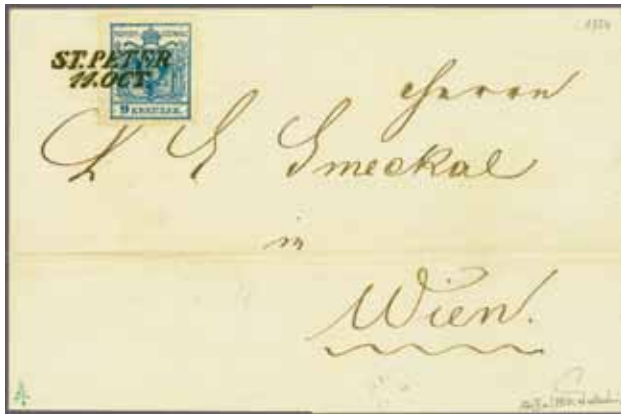 1854
ST. PETER
11. OCT.
9 KREUZER.
Herrn
Smeckal
in
Wien.